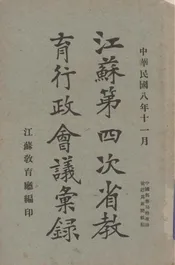 中華民國八年十一月
江蘇第四次省教
育行政會議彙錄
江蘇教育廳編印